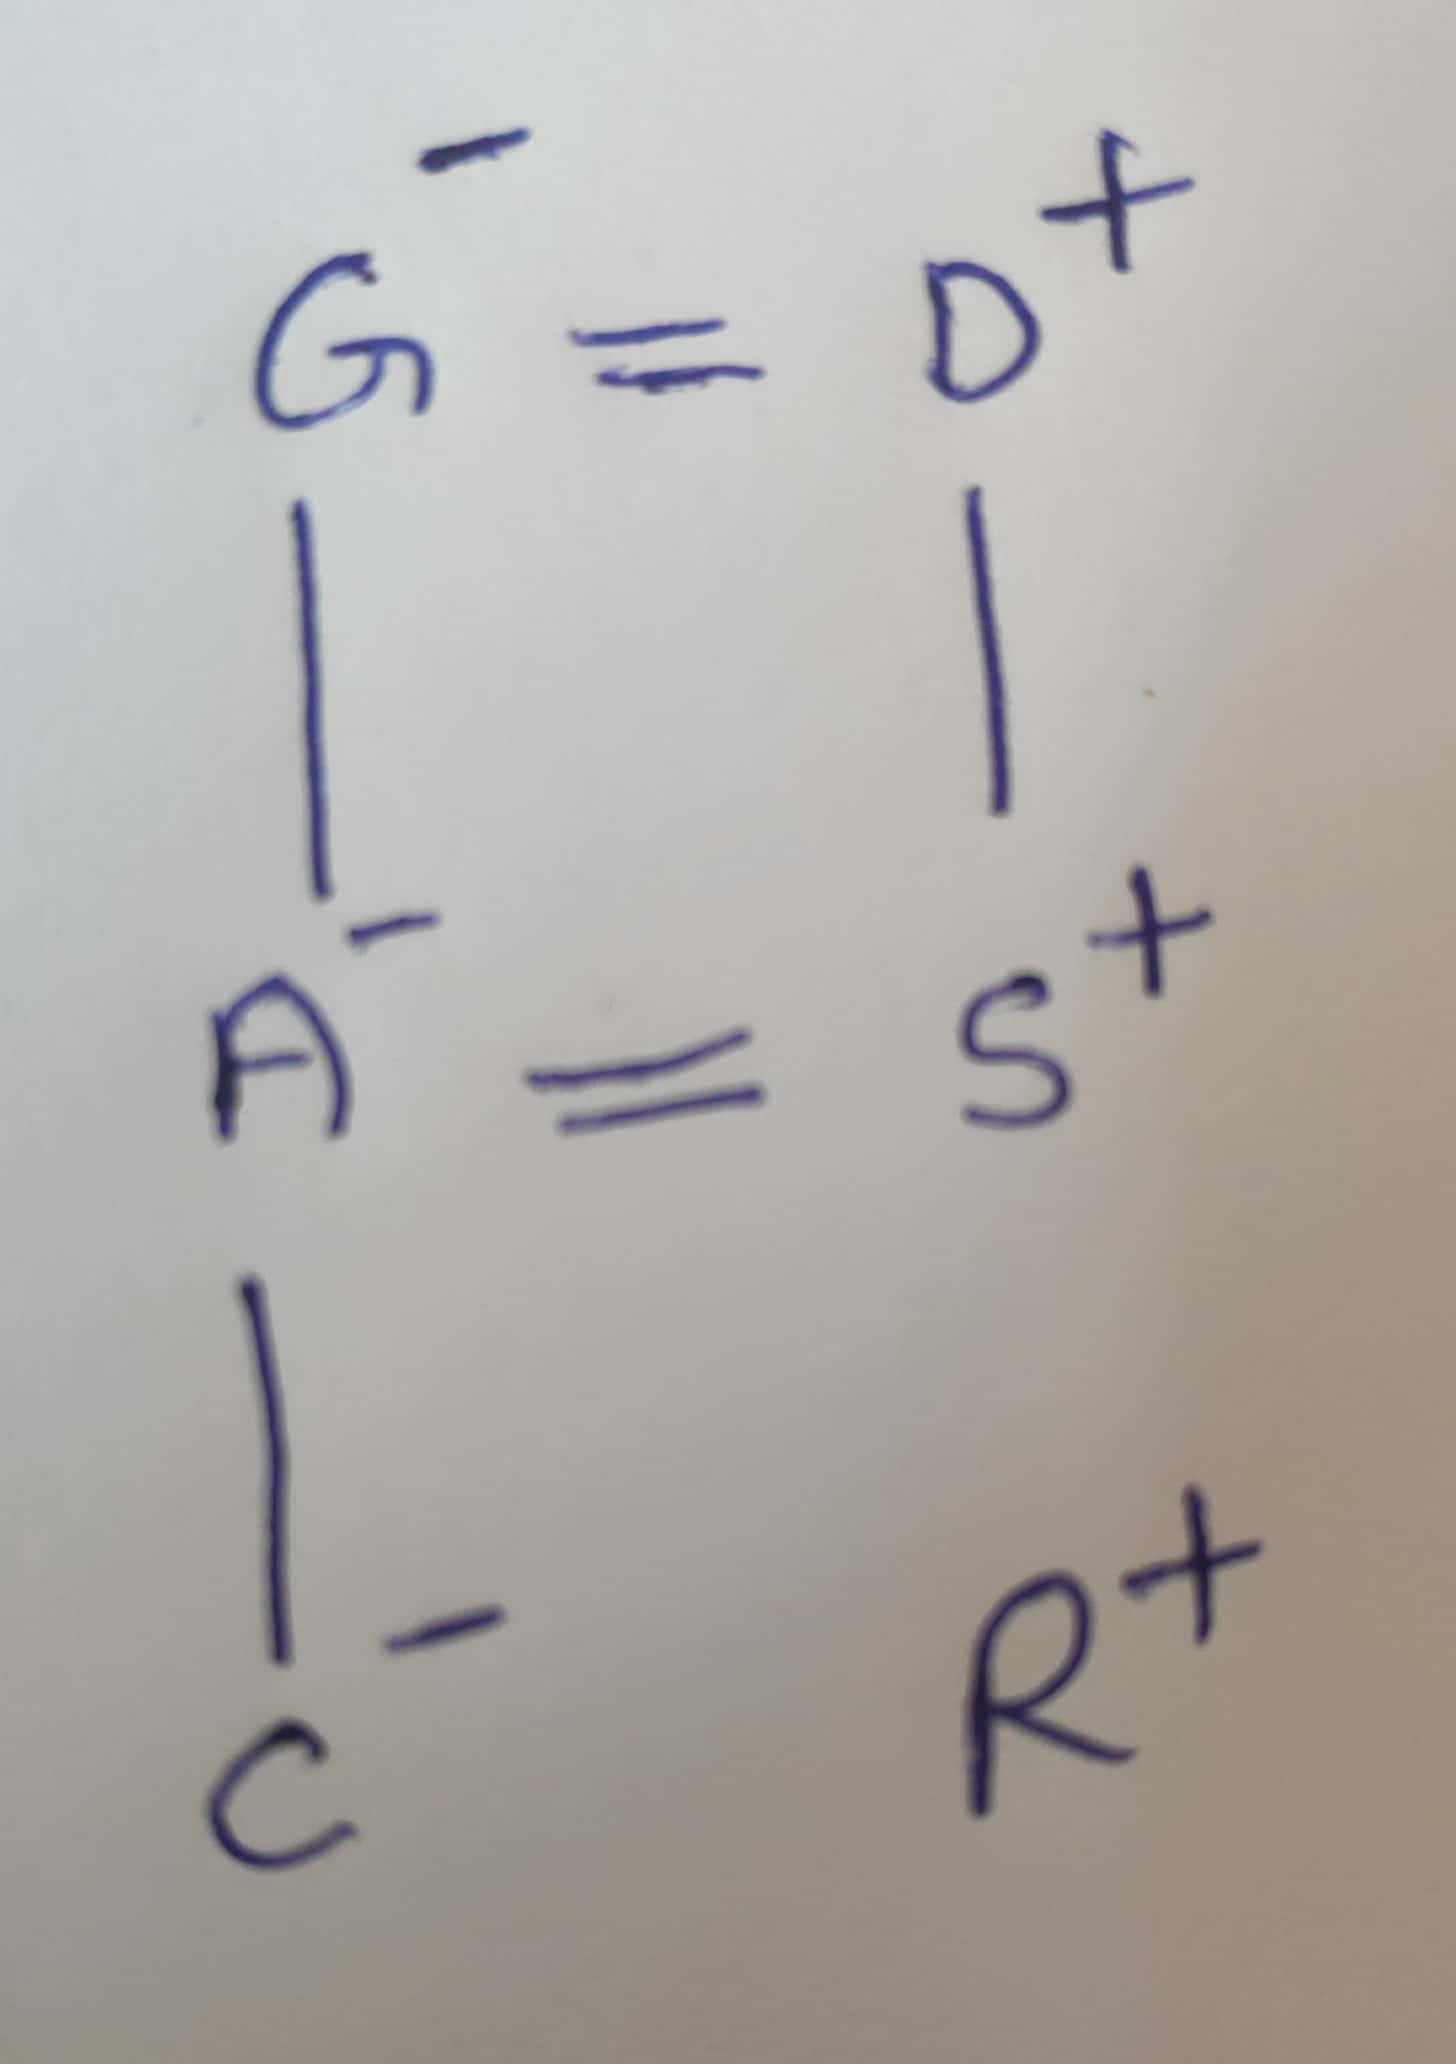 G⁻ = D⁺
| |
A⁻ = S⁺
|
C⁻ R⁺